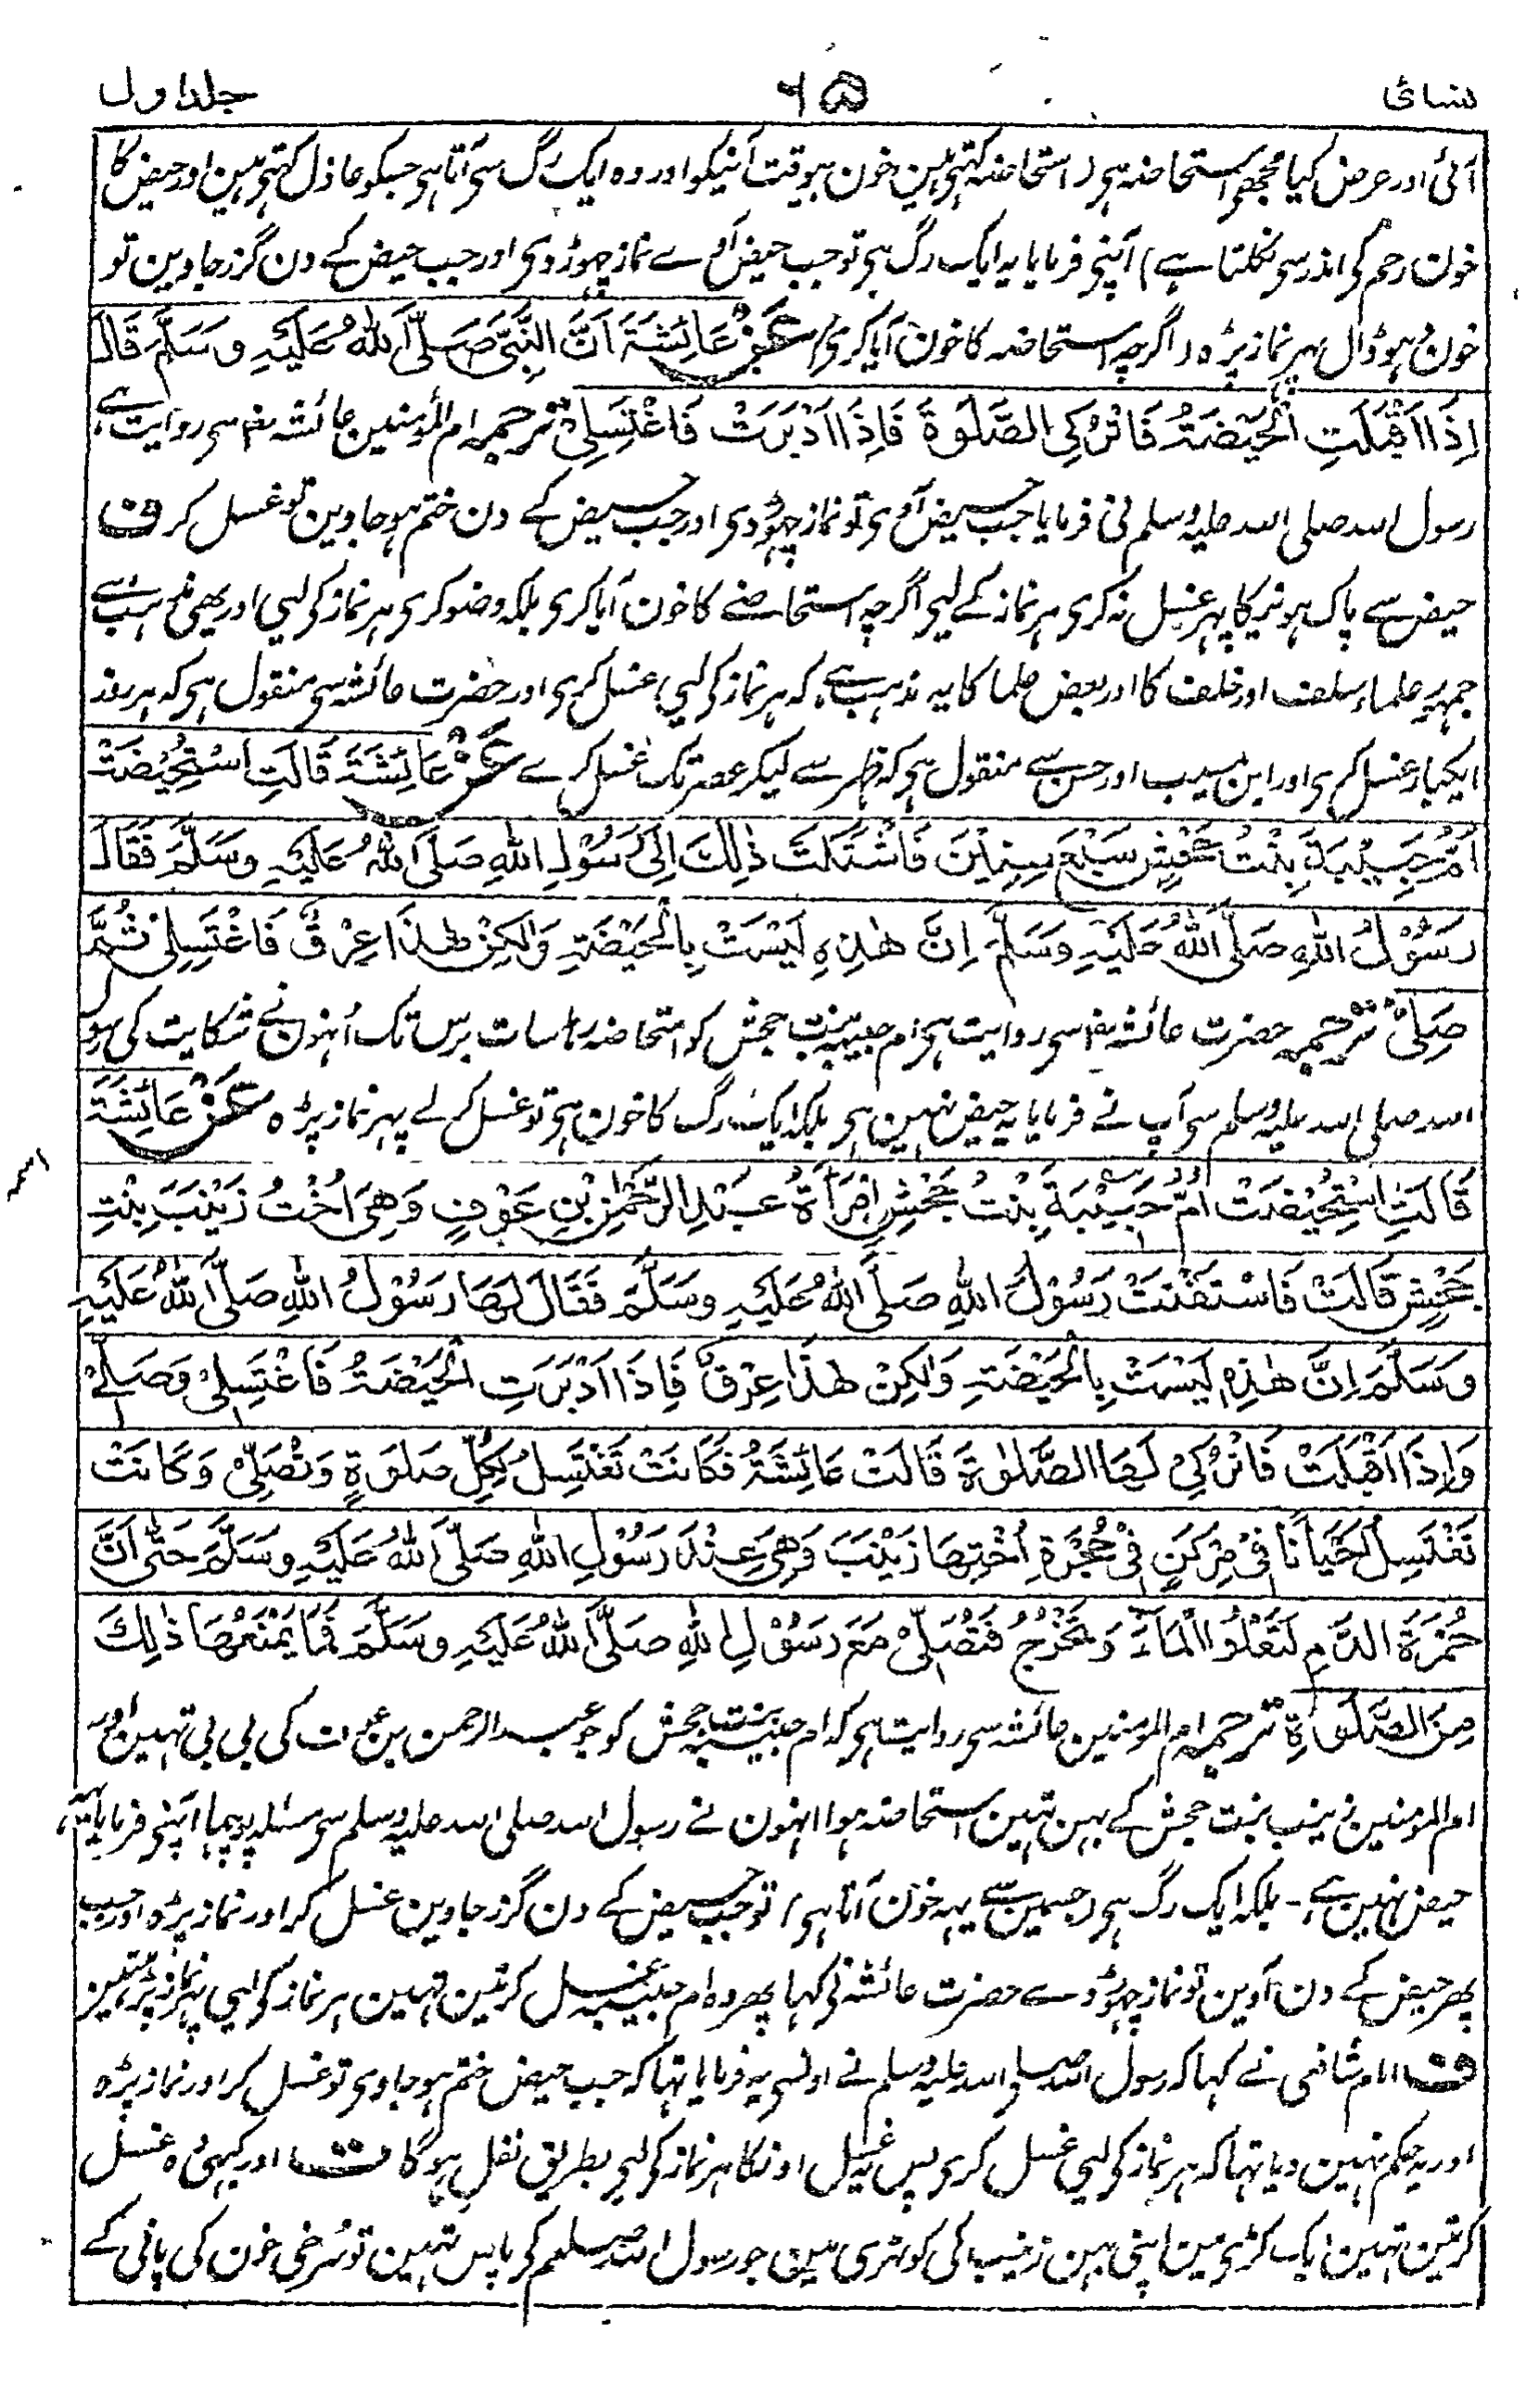 نسائی ۶۵ جلد اول
آئی اور عرض کیا مجھی استحاضہ ہی (استحاضہ کہتی ہین خون بیوقت آنیکو اور وہ ایک رگ سی آتا ہی جسکو عاذل کہتی ہین اور حیض کا
خون رحم کی اندر سی نکلتا ہے) آپنی فرمایا یہ ایک رگ ہی تو جب حیض آوے نماز چھوڑ دی اور جب حیض کے دن گزر جاوین تو
خون دہو ڈال پہر نماز پڑہ (اگرچہ استحاضہ کا خون آیا کری) عَنْ عَائِشَةَ اَنَّ النَّبِیَّ صَلَّی اللهُ عَلَیْهِ وَسَلَّمَ قَالَ
اِذَا اَقْبَلَتِ الْحَیْضَةُ فَاتْرُکِی الصَّلٰوةَ فَاِذَا اَدْبَرَتْ فَاغْتَسِلِیْ ترجمہ ام المؤمنین عائشہ رض سی روایت ہے
رسول اللہ صلی اللہ علیہ وسلم نی فرمایا جب حیض آوی تو نماز چہوڑ دی اور جب حیض کے دن ختم ہو جاوین تو غسل کر ف
حیض سے پاک ہونیکا پہر غسل نہ کری ہر نماز کے لیی اگرچہ استحاضے کا خون آیا کری بلکہ وضو کری ہر نماز کی لیی اور یہی مذہب ہے
جمہور علماء سلف اور خلف کا اور بعض علما کا یہ مذہب ہے کہ ہر نماز کی لیی غسل کری اور حضرت عائشہ سی منقول ہی کہ ہر روز
ایکبار غسل کری اور ابن مسیب اور حسن سے منقول ہی کہ ظہر سے لیکر عصر تک غسل کرے عَنْ عَائِشَةَ قَالَتِ اسْتُحِیْضَتْ
اُمُّ حَبِیْبَةَ بِنْتُ جَحْشٍ سَبْعَ سِنِیْنَ فَاشْتَکَتْ ذٰلِكَ اِلٰی رَسُوْلِ اللهِ صَلَّی اللهُ عَلَیْهِ وَسَلَّمَ فَقَالَ
رَسُوْلُ اللهِ صَلَّی اللهُ عَلَیْهِ وَسَلَّمَ اِنَّ هٰذِهٖ لَیْسَتْ بِالْحَیْضَةِ وَلٰکِنْ هٰذَا عِرْقٌ فَاغْتَسِلِیْ ثُمَّ
صَلِّیْ ترجمہ حضرت عائشہ رض سی روایت ہی ام حبیبہ بنت جحش کو استحاضہ رہا سات برس تک اُنہون نے شکایت کی رسول
اللہ صلی اللہ علیہ وسلم سی آپ نے فرمایا یہ حیض نہین ہی بلکہ ایک رگ کا خون ہی تو غسل کر لے پہر نماز پڑہ عَنْ عَائِشَةَ
قَالَتِ اسْتُحِیْضَتْ اُمُّ حَبِیْبَةَ بِنْتُ جَحْشٍ اِمْرَأَةُ عَبْدِ الرَّحْمٰنِ بْنِ عَوْفٍ وَهِیَ اُخْتُ زَیْنَبَ بِنْتِ
جَحْشٍ قَالَتْ فَاسْتَفْتَتْ رَسُوْلَ اللهِ صَلَّی اللهُ عَلَیْهِ وَسَلَّمَ فَقَالَ لَهَا رَسُوْلُ اللهِ صَلَّی اللهُ عَلَیْهِ
وَسَلَّمَ اِنَّ هٰذِهٖ لَیْسَتْ بِالْحَیْضَةِ وَلٰکِنْ هٰذَا عِرْقٌ فَاِذَا اَدْبَرَتِ الْحَیْضَةُ فَاغْتَسِلِیْ وَصَلِّیْ
وَاِذَا اَقْبَلَتْ فَاتْرُکِیْ لَهَا الصَّلٰوةَ قَالَتْ عَائِشَةُ فَکَانَتْ تَغْتَسِلُ لِکُلِّ صَلٰوةٍ وَتُصَلِّیْ وَکَانَتْ
تَغْتَسِلُ اَحْیَانًا فِیْ مِرْکَنٍ فِیْ حُجْرَةِ اُخْتِهَا زَیْنَبَ وَهِیَ عِنْدَ رَسُوْلِ اللهِ صَلَّی اللهُ عَلَیْهِ وَسَلَّمَ حَتّٰی اَنَّ
حُمْرَةَ الدَّمِ لَتَعْلُو الْمَاءَ وَتَخْرُجُ فَتُصَلِّیْ مَعَ رَسُوْلِ اللهِ صَلَّی اللهُ عَلَیْهِ وَسَلَّمَ فَمَا یَمْنَعُهَا ذٰلِكَ
مِنَ الصَّلٰوةِ ترجمہ ام المومنین عائشہ سی روایت ہی کہ ام حبیبہ بنت جحش کو جو عبدالرحمن بن عوف کی بی بی تہین اور
ام المومنین زینب بنت جحش کے بہن تہین استحاضہ ہوا انہون نے رسول اللہ صلی اللہ علیہ وسلم سی مسئلہ پوچہا آپنی فرمایا یہ
حیض نہین ہے - بلکہ ایک رگ ہی (جسمین سے یہہ خون آتا ہی) تو جب حیض کے دن گزر جاوین غسل کر اور نماز پڑہ اور جب
پھر حیض کے دن آوین تو نماز چہوڑ دے حضرت عائشہ نی کہا پھر وہ ام حبیبہ غسل کرتین تہین ہر نماز کی لیی پہر نماز پڑہتین
ف امام شافعی نے کہا کہ رسول اللہ صلی اللہ علیہ وسلم نے اونسی یہ فرمایا تہا کہ جب حیض ختم ہو جاوی تو غسل کر اور نماز پڑہ
اور یہ حکم نہین دیا تہا کہ ہر نماز کی لیی غسل کری پس یہ غسل اونکا ہر نماز کی لیی بطریق نفل ہوگا ف اور کبہی وہ غسل
کرتین تہین ایک کڑہی مین اپنی بہن زینب کی کوٹہری مین جو رسول اللہ صلعم کی پاس تہین تو سُرخی خون کی پانی کے